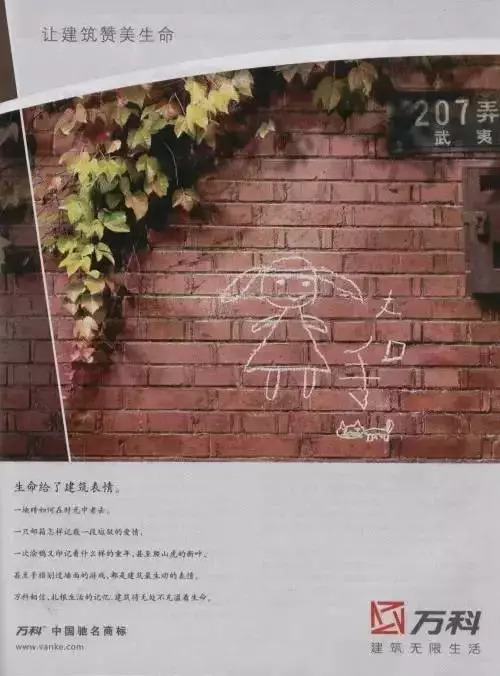 让建筑赞美生命
207弄
武夷
生命给了建筑表情。
一块砖如何在时光中老去。
一只邮箱怎样记载一段的爱情。
一次涂鸦又印记着什么样的童年,甚至爬山虎的新叶、
甚至手指划过墙面的游戏,都是建筑最生动的表情。
万科相信,扎根生活的记忆,建筑将无处不充溢着生命。
万科™ 中国驰名商标
www.vanke.com
万科
建筑无限生活